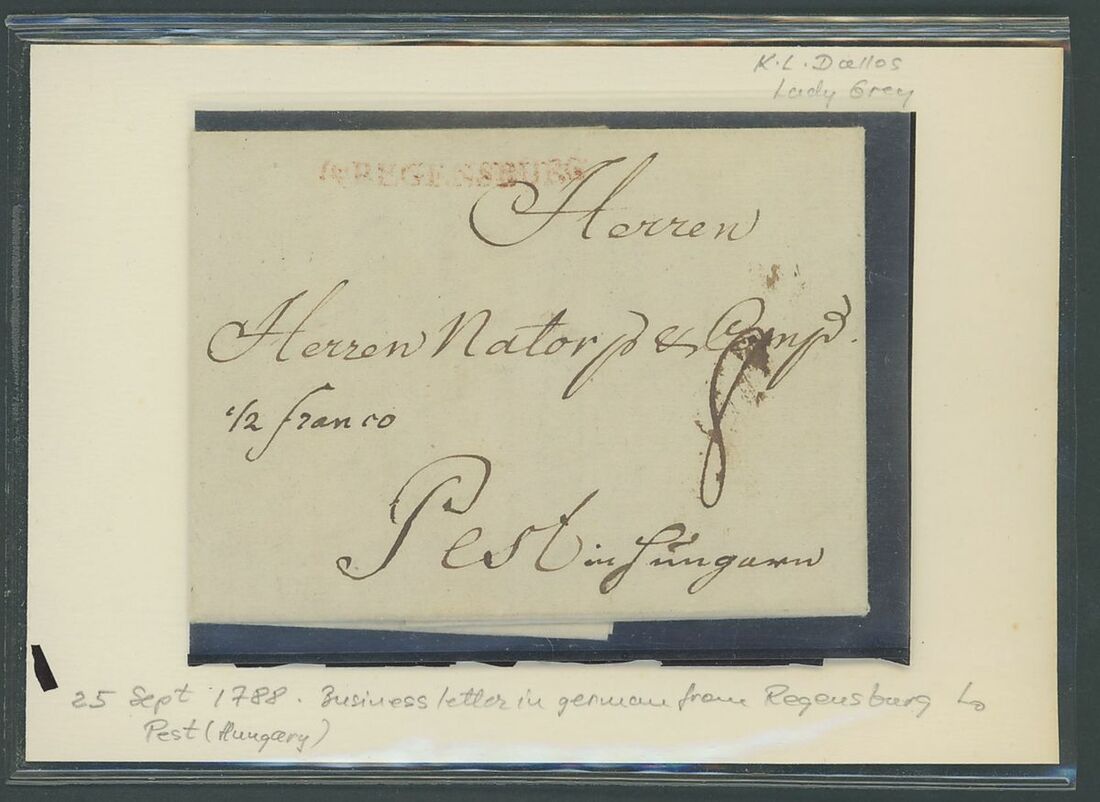 K.L. Dallos
Lady Grey
REGENSBURG
Herren
Herren Natorp & Comp.
1/2 franco
8
Pest in Hungarn
25 Sept 1788. Business letter in german from Regensburg to
Pest (Hungary)